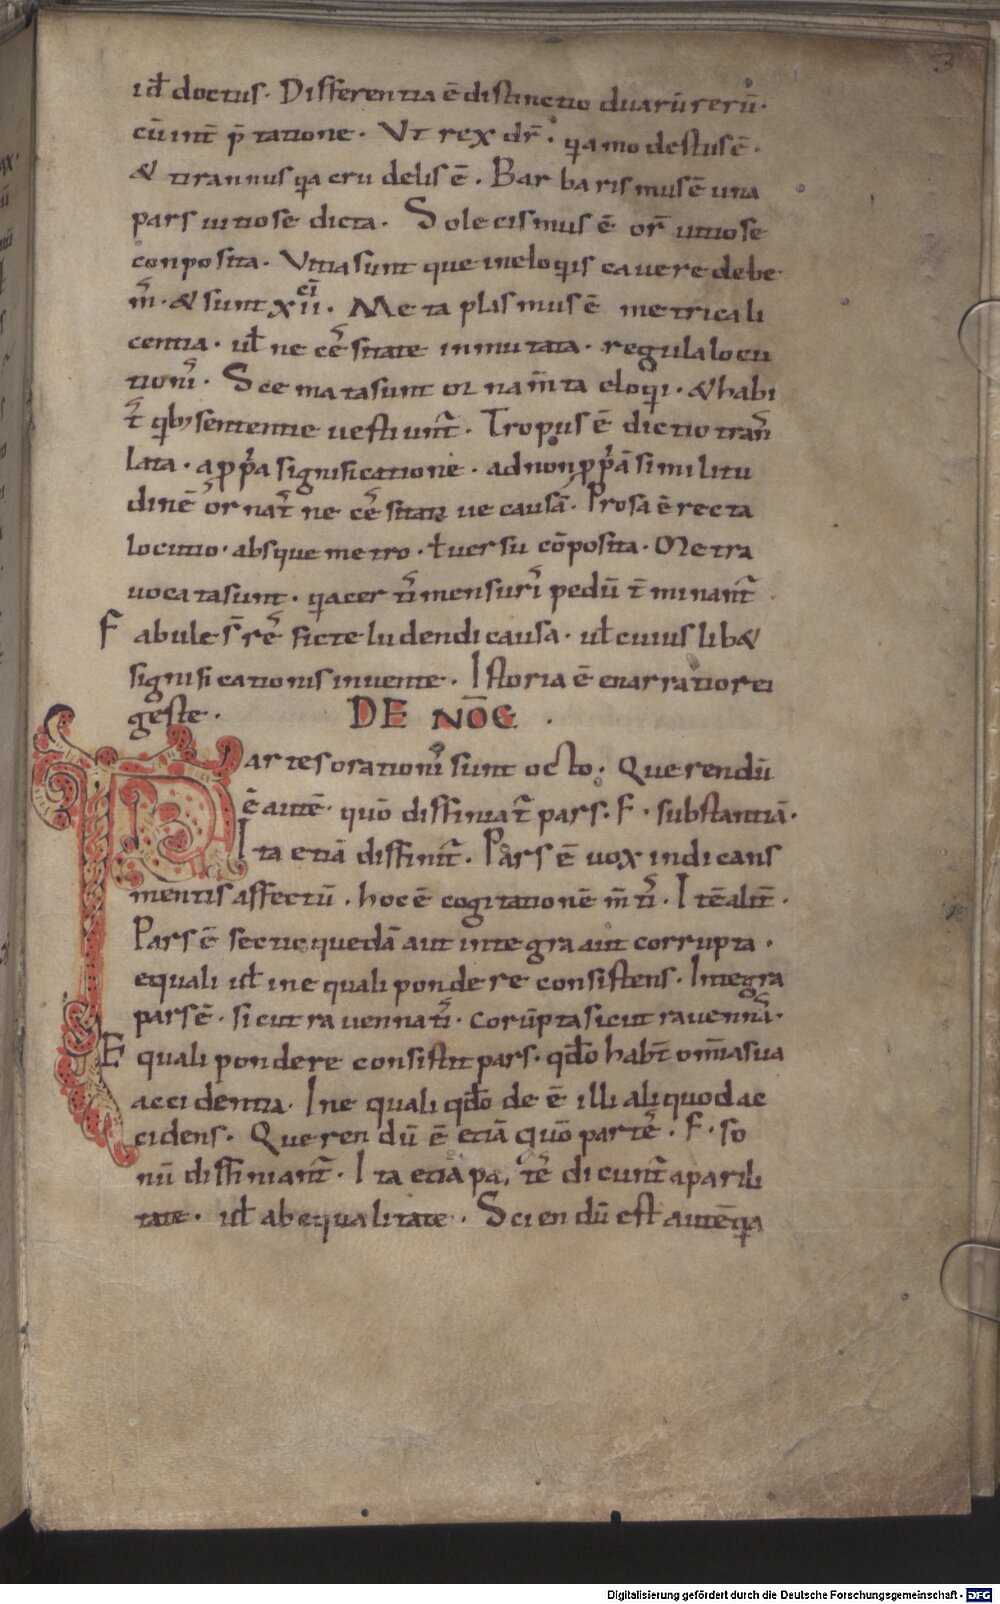 3
id̄ doctus. Differentia ē distinctio duarū rerū.
cū int̄ p̄tatione. Vt rex dr̄. qa modestus ē.
& tirannus qa crudelis ē. Barbarismus ē una
pars uitiose dicta. Solecismus ē or̄ uitiose
conposita. Vitia sunt que in eloqis cauere debe
m̄. & sunt xii. Metaplasmus ē metrica li
centia. ul̄ necēsitate inmutata. regula locu
tionī. Scemata sunt ornam̄ta eloqi. & habi
t̄ qb; sententie uestiunt̄. Tropus ē dictio tran̄
lata. a ppa significatione. ad non ppā similitu
dinē ornat̄ necēsitatis ue causā. Prosa ē recta
locutio. absque metro. ł uersu cōposita. Metra
uocata sunt. qa certī mensurī pedū t̄minant̄.
Fabule s̄ rē ficte ludendi causa. ul̄ cuiuslib&
significationis inuente. Istoria ē enarratio rei
geste. DE NOĒ.
Partes orationī sunt octo. Querendū
ē autē. quō diffiniat̄ pars. F. substantiā.
Ita etiā diffinit̄. Pars ē uox indicans
mentis affectū. hoc ē cogitationē m̄tī. Itē alit̄.
Pars ē sectio quedā aut integra aut corrupta.
equali ul̄ inequali pondere consistens. Integra
pars ē. sicut rauennatī. corūpta sicut rauennā.
Equali pondere consistit pars. qdo hab̄t om̄ia sua
accidentia. Inequali qdo de ē illi aliquod ac
cidens. Querendū ē etiā quō partē. F. so
nū diffiniant̄. Ita etiā partē dicunt̄ a parili
tate. ul̄ ab equalitate. Sciendū est autē qa
Digitalisierung gefördert durch die Deutsche Forschungsgemeinschaft - DFG